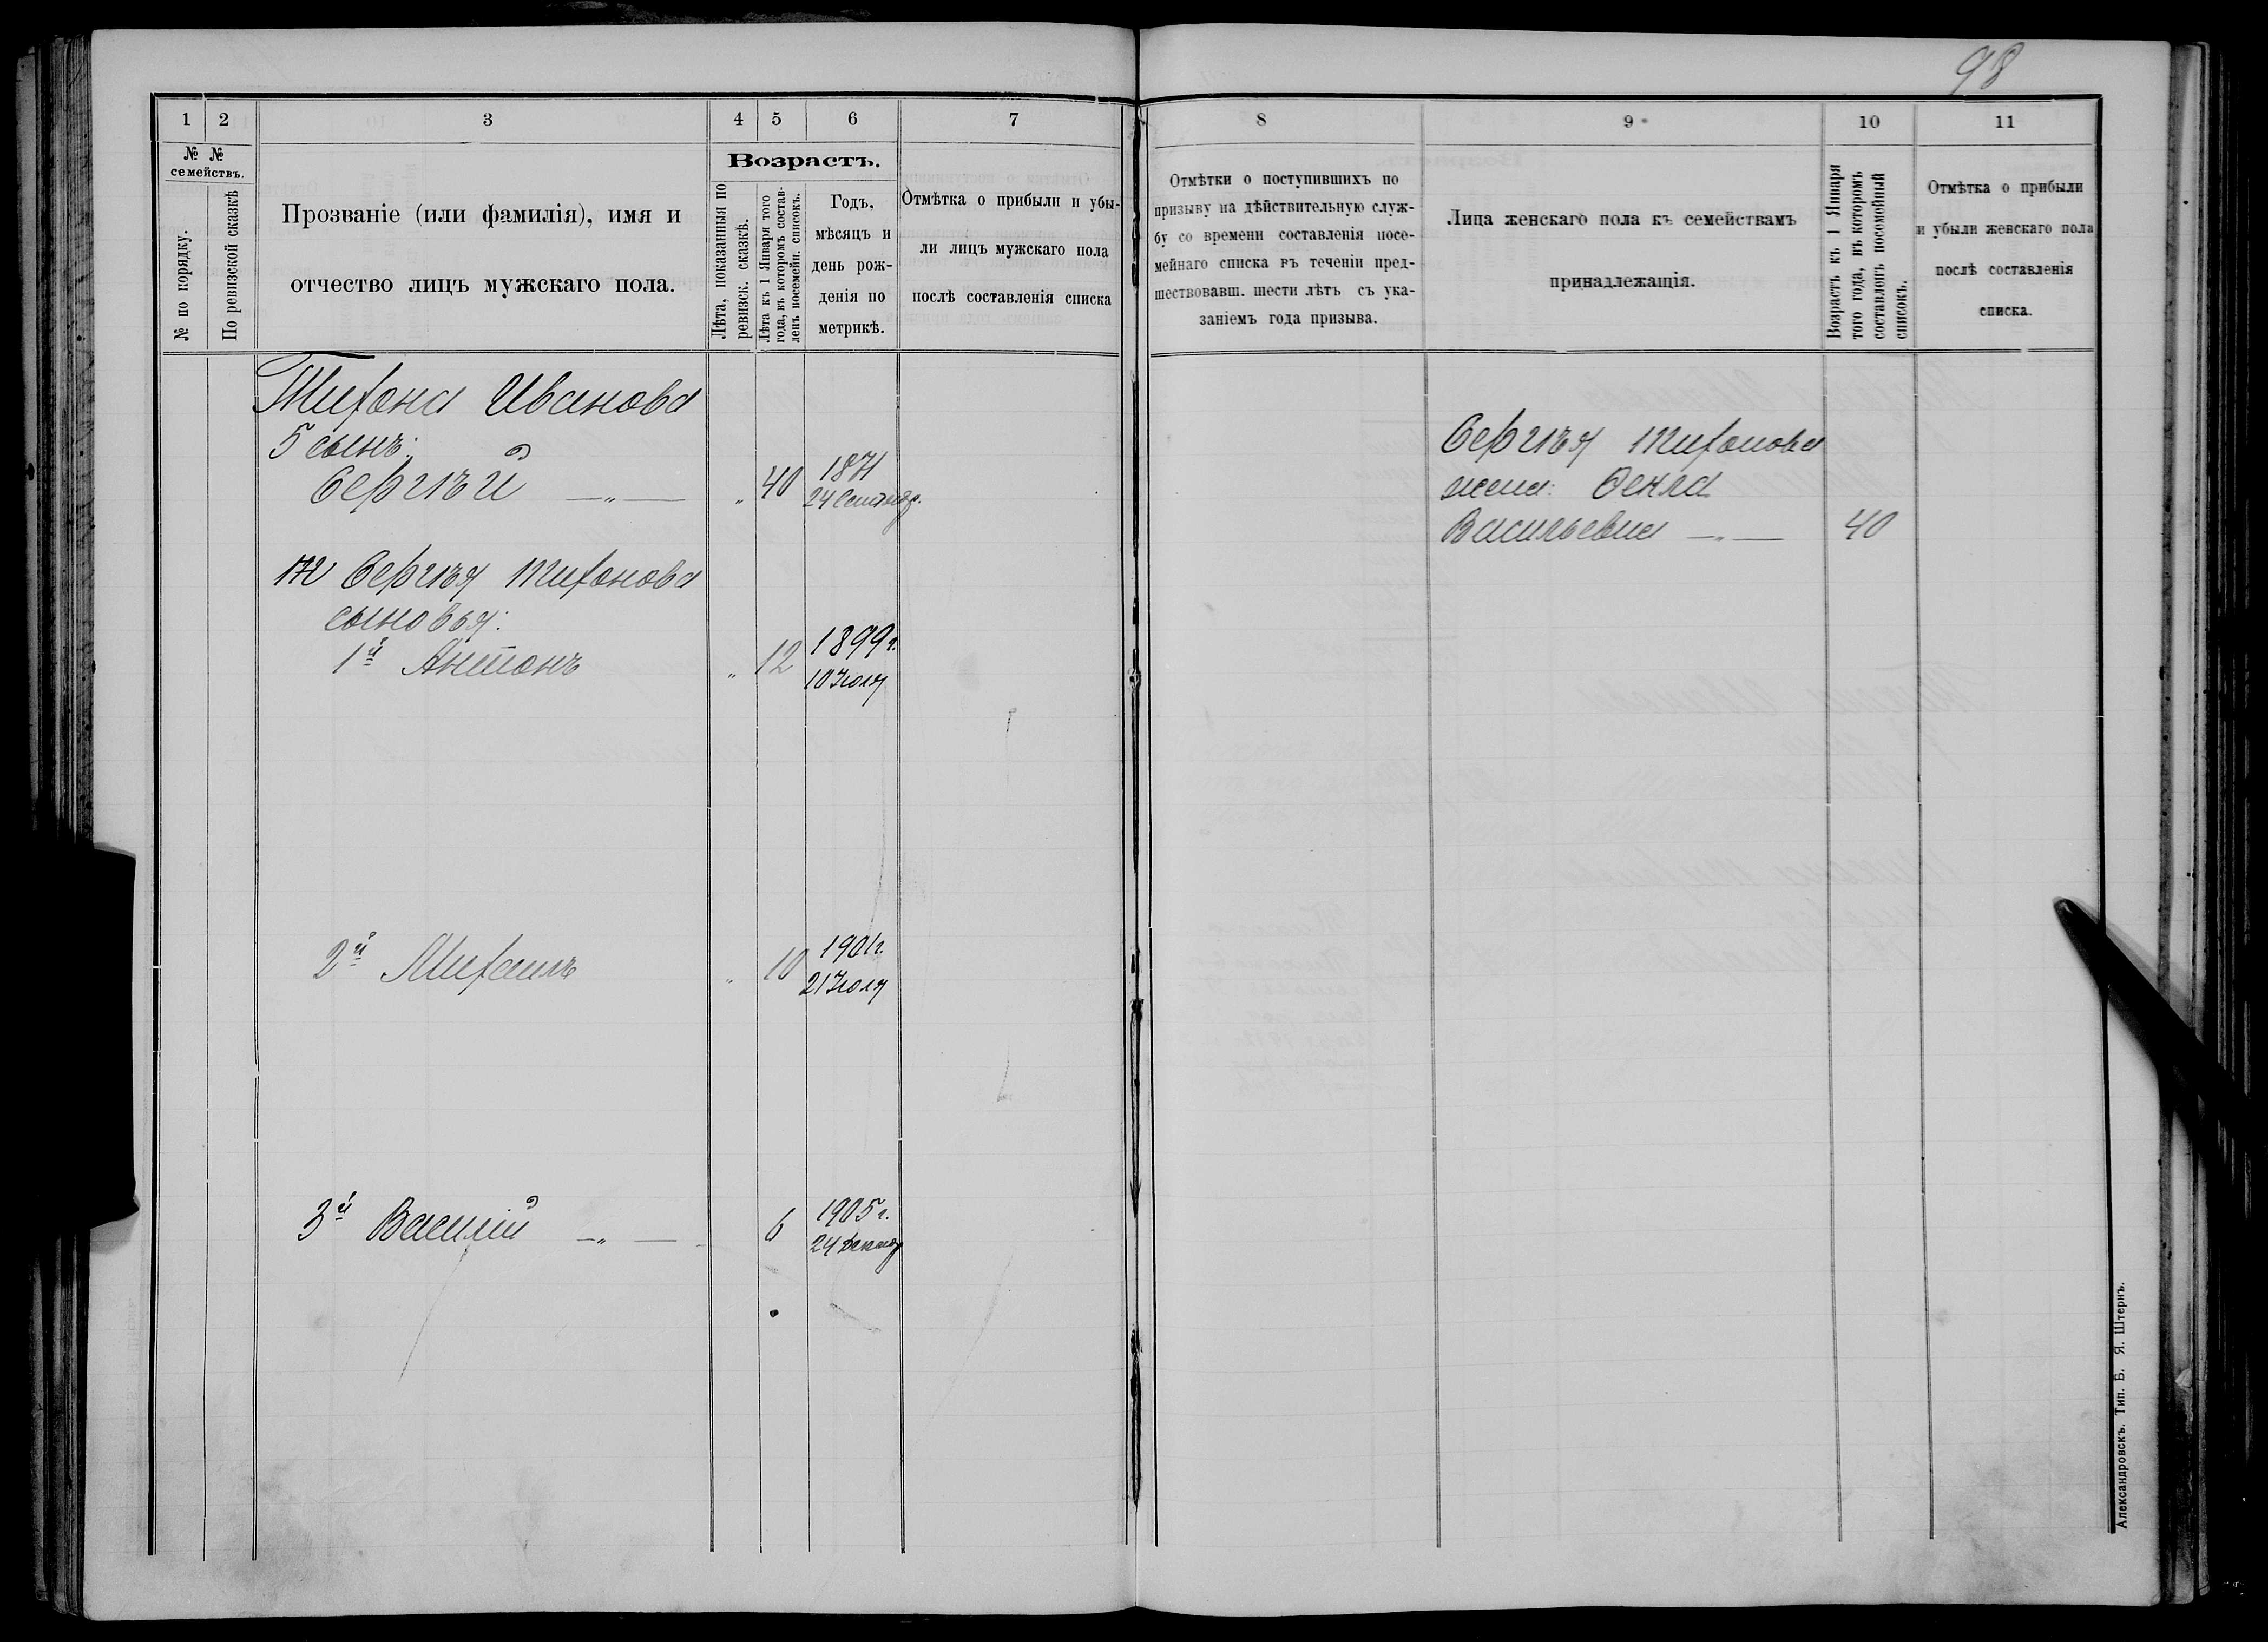 98
1 2 3 4 5 6 7
№ №
семействъ.
№ по порядку.
По ревизской сказкѣ
Прозваніе (или фамилія), имя и
отчество лицъ мужскаго пола.
Возрастъ.
Лѣта, показанныя по
ревизск. сказкѣ.
Лѣта къ 1 Января того
года, въ которомъ состав-
ленъ посемейн. списокъ.
Годъ,
мѣсяцъ и
день рож-
денія по
метрикѣ.
Отмѣтка о прибыли и убы-
ли лицъ мужскаго пола
послѣ составленія списка
Тихона Иванова
5 сынъ:
Сергѣй —„— „ 40 1871
24 Сентябр.
Сергѣя Тихонова
сыновья:
1й Антонъ „ 12 1899 г.
10 Іюля
2й Михаилъ „ 10 1901 г.
21 Іюля
3й Василій —„— 6 1905 г.
24 Декабр
8 9 10 11
Отмѣтки о поступившихъ по
призыву на дѣйствительную служ-
бу со времени составленія посе-
мейнаго списка въ теченіи пред-
шествовавш. шести лѣтъ съ ука-
заніемъ года призыва.
Лица женскаго пола къ семействамъ
принадлежащія.
Возрастъ къ 1 Января
того года, въ которомъ
составленъ посемейный
списокъ.
Отмѣтка о прибыли
и убыли женскаго пола
послѣ составленія
списка.
Сергѣя Тихонова
жена: Ѳекла
Васильевна —„— 40
Александровскъ. Тип. Б. Я. Штернъ.